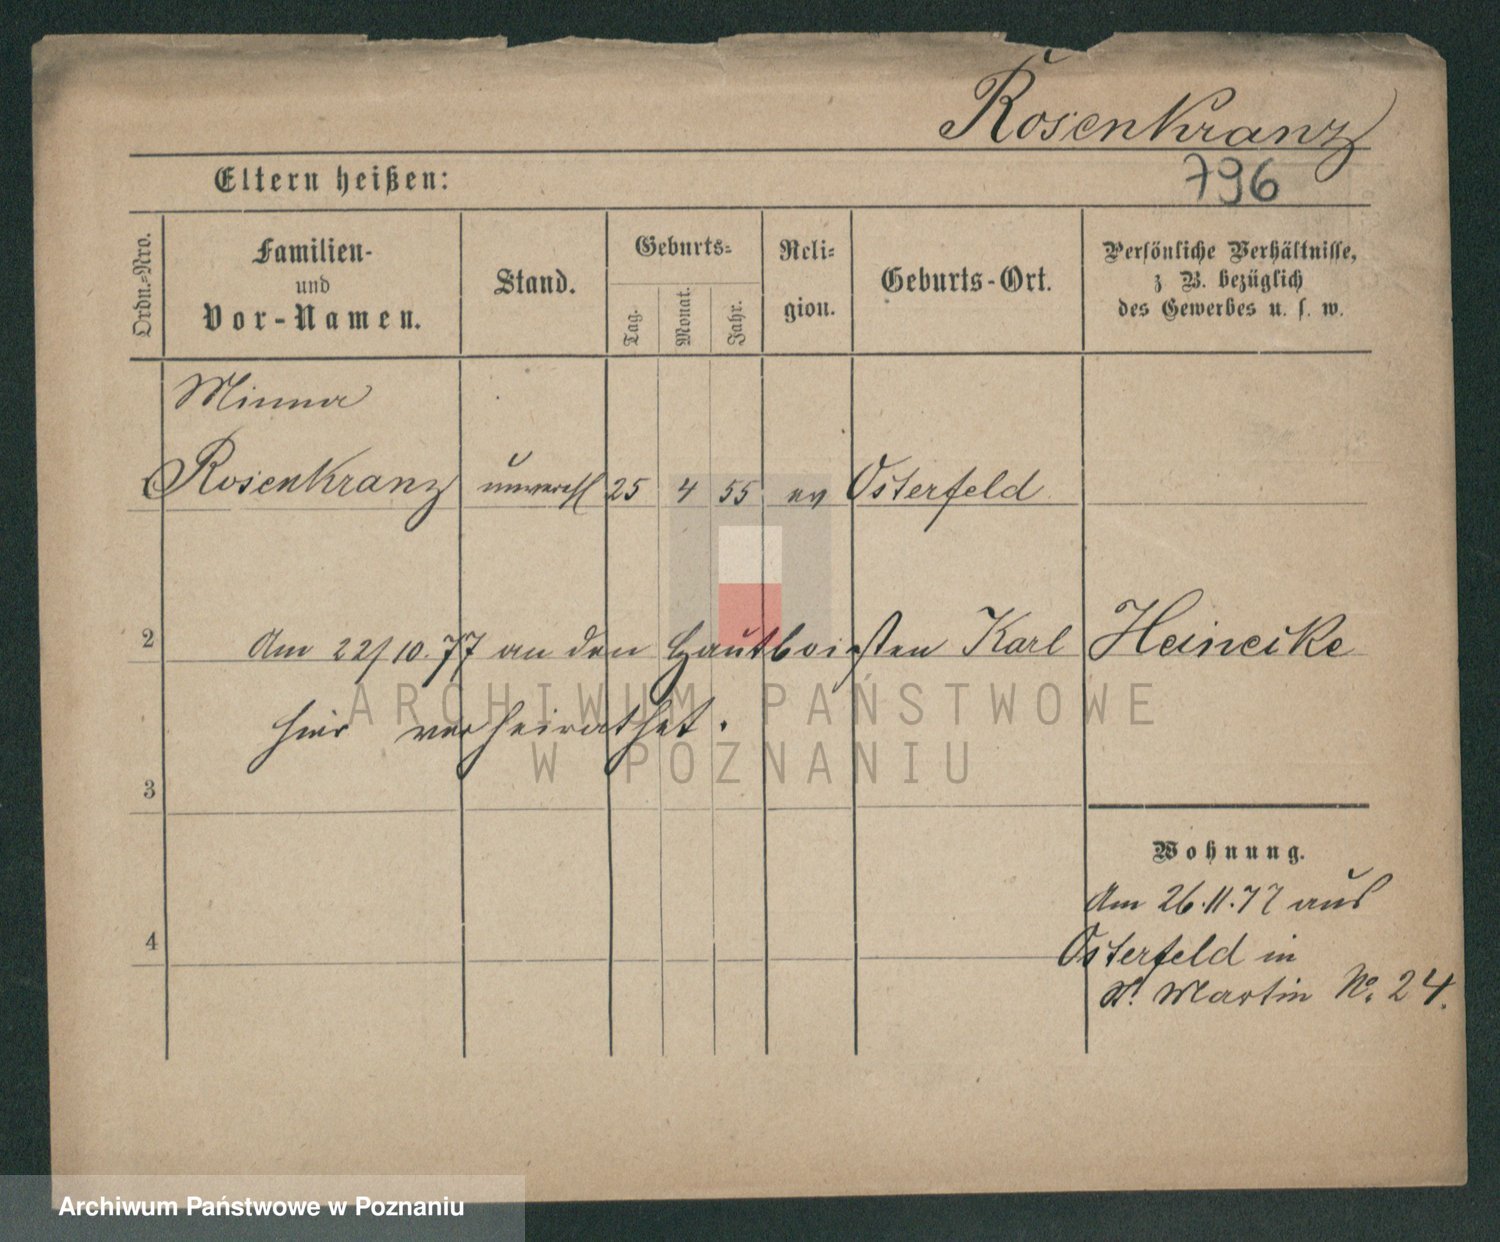 Rosenkranz
796
Eltern heißen:
Ordn.=Nro.
Familien-
und
Vor-Namen.
Stand.
Geburts=
Tag.
Monat.
Jahr.
Reli=
gion.
Geburts-Ort.
Persönliche Verhältnisse,
z B. bezüglich
des Gewerbes u. s. w.
Minna
Rosenkranz unverehl 25 4 55 ev Osterfeld
2 Am 22/10.77 an den Hautboisten Karl Heineike
hier verheirathet.
3
Wohnung.
Am 26.11.77 aus
Osterfeld in
St. Martin No. 24.
4
ARCHIWUM PAŃSTWOWE
W POZNANIU
Archiwum Państwowe w Poznaniu